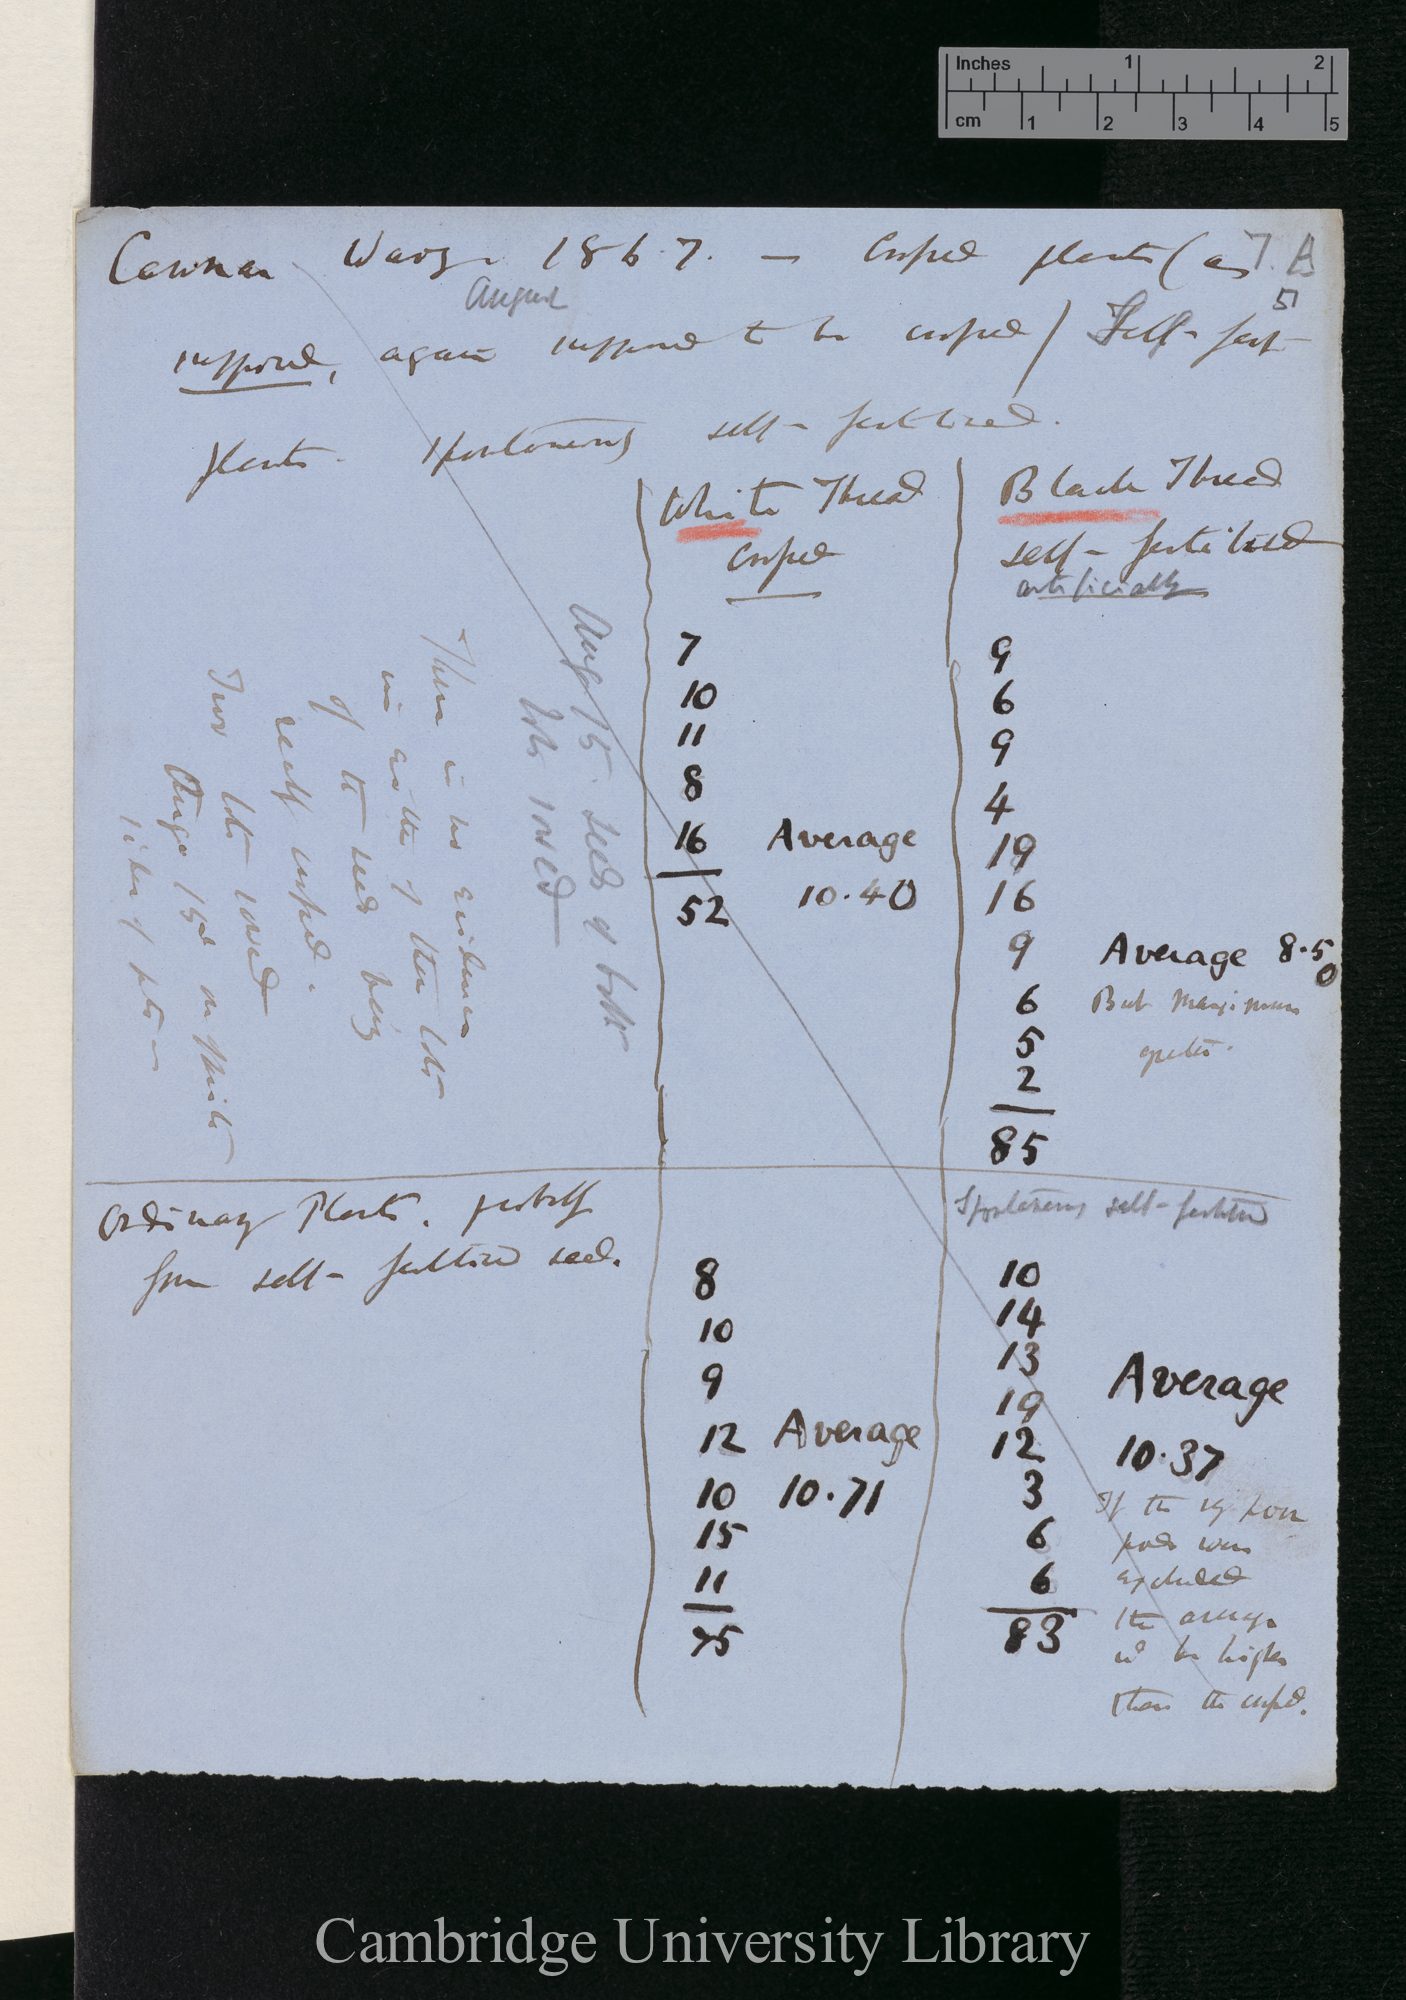 Inches 1 2
cm 1 2 3 4 5
Canna Warz. 1867. — Crossed plants (as 7. A
August 5
supposed, again supposed to be crossed / Self-fert
plants. spontaneously self-fertilized.
White Thread
Crossed
7
10
11
8
16
52
Average
10.40
Black Thread
self-fertilized
artificially
9
6
9
4
19
16
9
6
5
2
85
Average 8.50
But Maximum
greater.
Aug 15. seeds of both
lots sowed
There is no evidence
in either of these lots
of the seeds being
really crossed.
Two lots sowed
Aug. 15th on opposite
sides of pots
Ordinary Plants. probably
from self-fertilized seed.
8
10
9
12
10
15
11
75
Average
10.71
Spontaneously self-fertilized
10
14
13
19
12
3
6
6
83
Average
10.37
If the very poor
pods were
excluded
the average
wd be higher
than the crossed.
Cambridge University Library